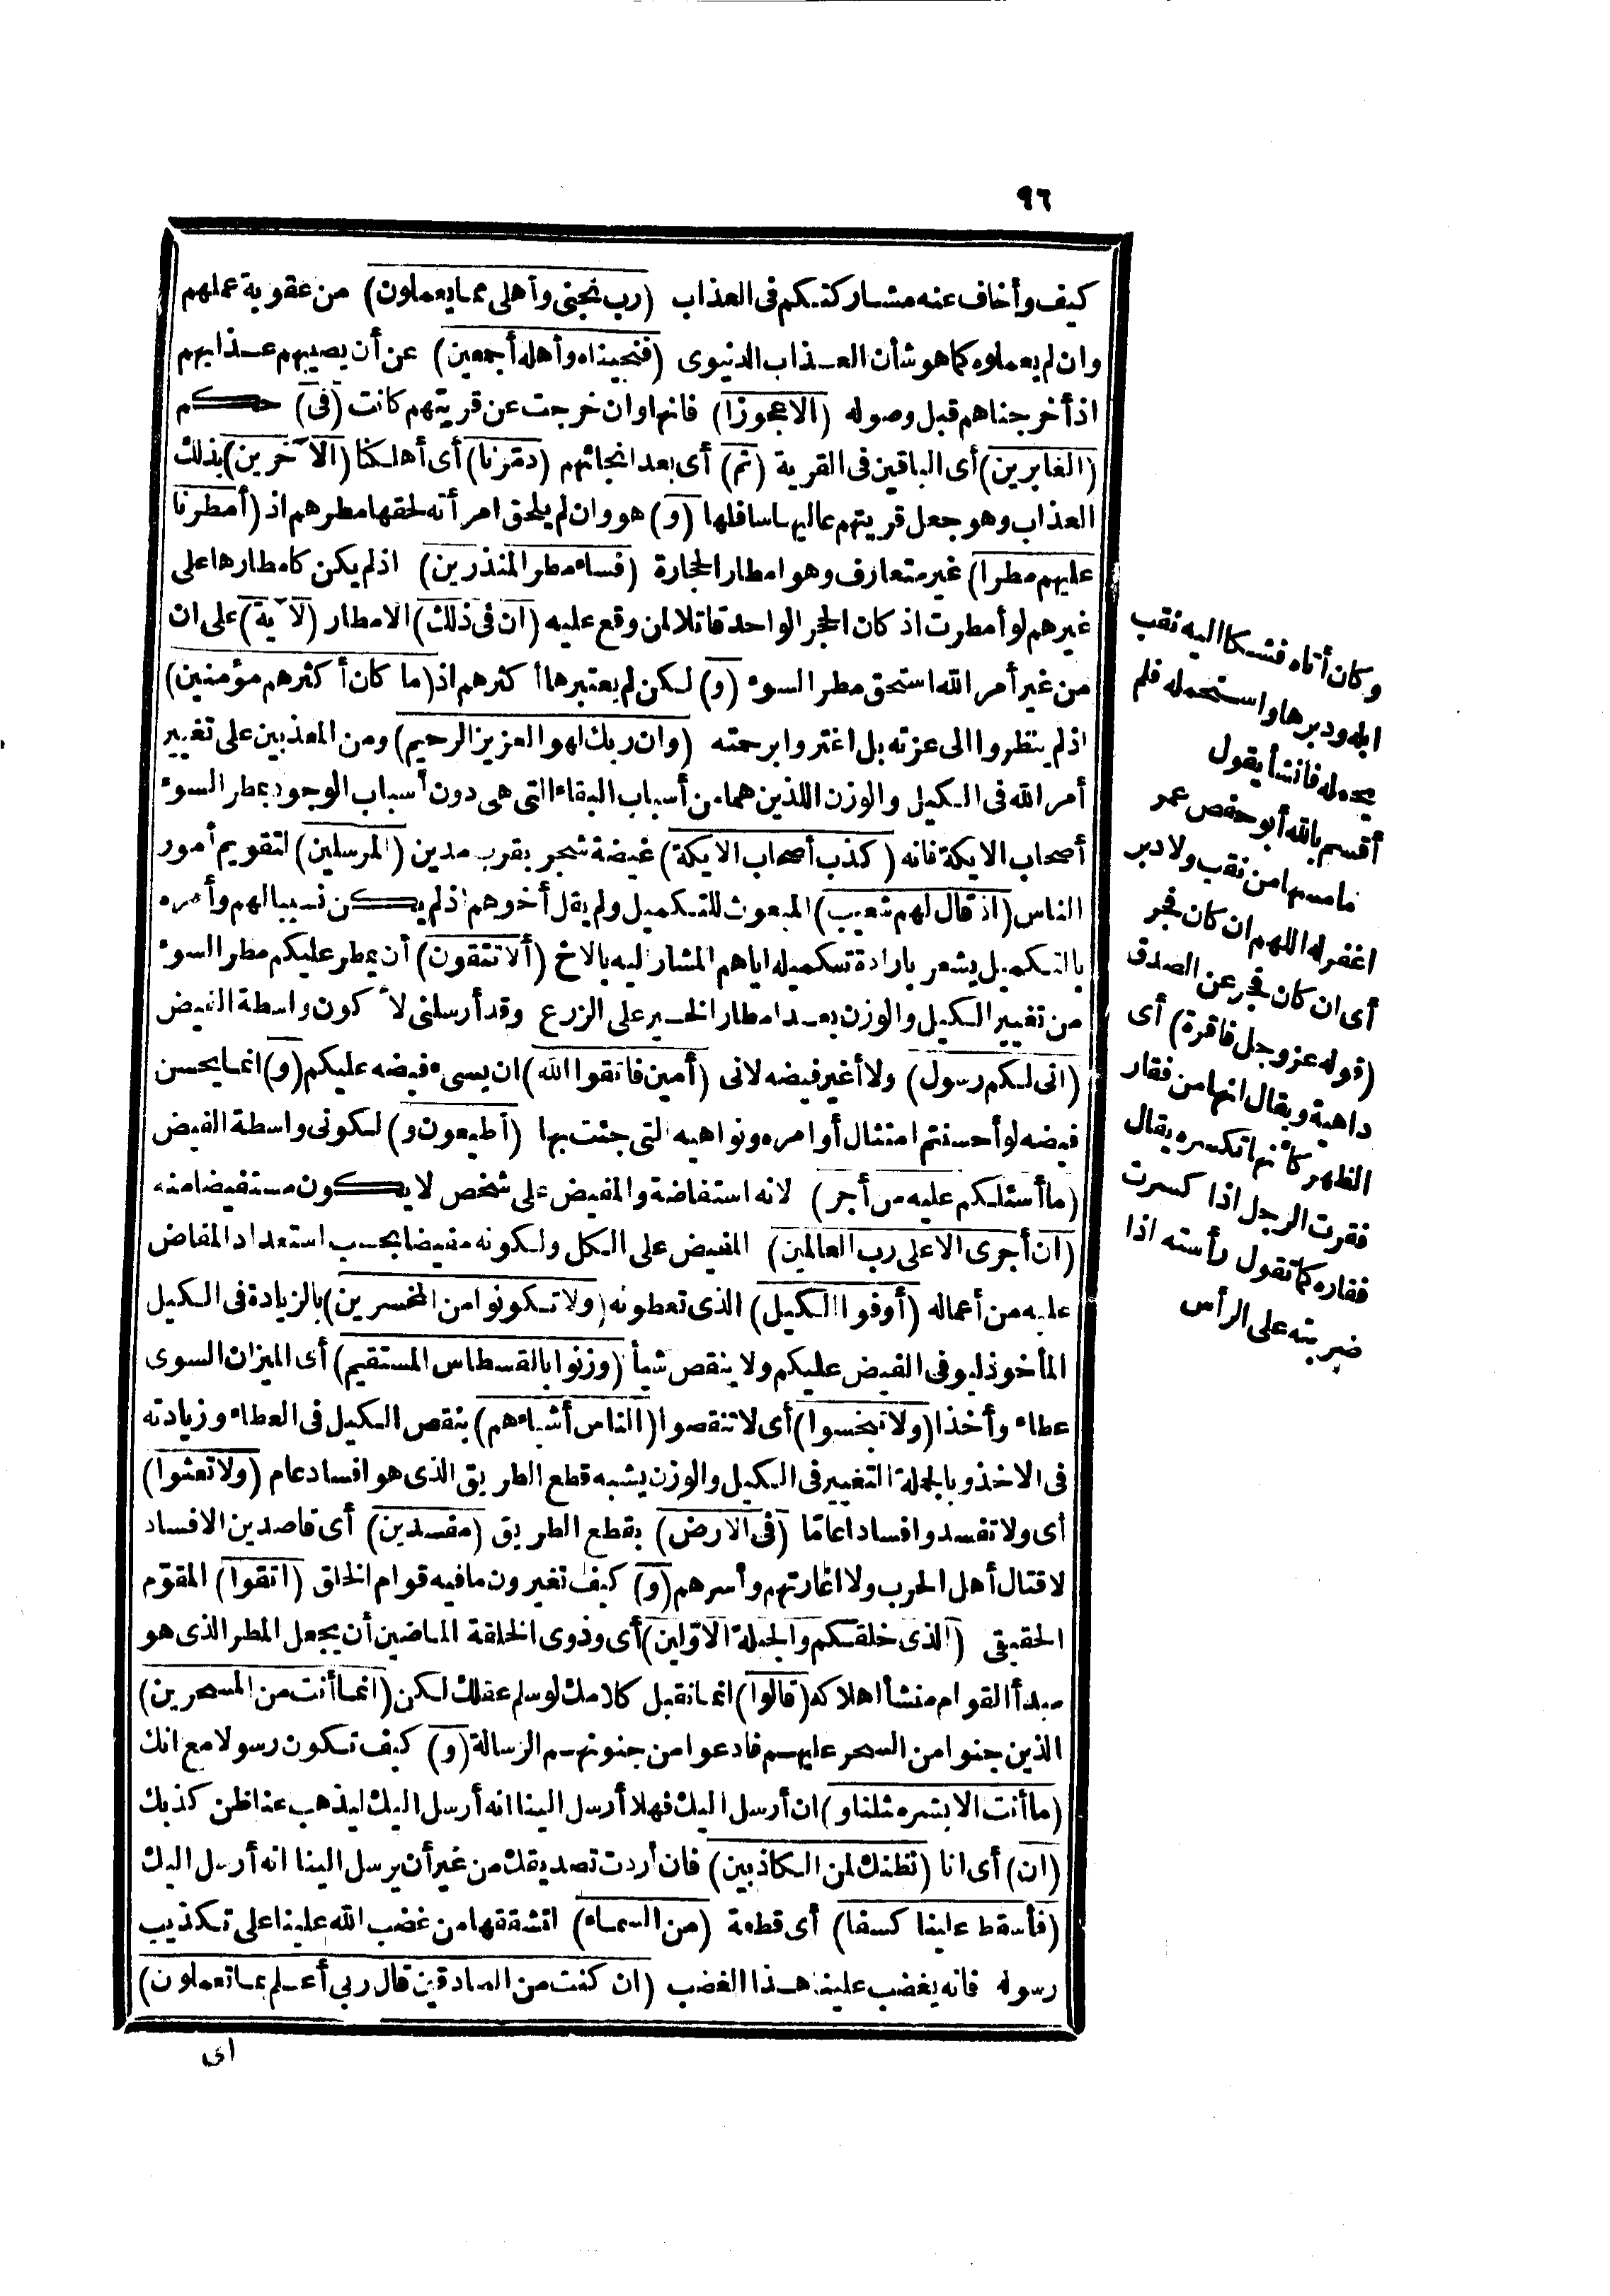 ٩٦
كيف وأخاف عنه مشاركتكم فى العذاب (رب نجنى وأهلى مما يعملون) من عقوبة عملهم
وان لم يعملوه كما هو شأن العذاب الدنيوى (فنجيناه وأهله أجمعين) عن أن يصيبهم عذابهم
اذ أخرجناهم قبل وصوله (الا عجوزا) فانها وان خرجت عن قريتهم كانت (فى) حكم
(الغابرين) أى الباقين فى القرية (ثم) أى بعد انجائهم (دمّرنا) أى أهلكنا (الآخرين) بذلك
العذاب وهو جعل قريتهم عاليها سافلها (و) هو وان لم يلحق امرأته لحقها مطرهم اذ (أمطرنا
عليهم مطرا) غير متعارف وهو امطار الحجارة (فساء مطر المنذرين) اذ لم يكن كامطارها على
غيرهم لو أمطرت اذ كان الحجر الواحد قاتلا لمن وقع عليه (ان فى ذلك) الامطار (لآية) على ان
من غير أمر الله استحق مطر السوء (و) لكن لم يعتبرها أكثرهم اذ (ما كان أكثرهم مؤمنين)
اذ لم ينظروا الى عزته بل اغتروا برحمته (وان ربك لهو العزيز الرحيم) ومن المعذبين على تغيير
أمر الله فى الكيل والوزن اللذين هما من أسباب البقاء التى هى دون أسباب الوجود بمطر السوء
أصحاب الايكة فانه (كذب أصحاب الايكة) غيضة شجر بقرب مدين (المرسلين) لتقويم أمور
الناس (اذ قال لهم شعيب) المبعوث للتكميل ولم يقل أخوهم اذ لم يكن نسيبا لهم وأمره
بالتكميل يشعر بارادة تكميله اياهم المشار اليه بالاخ (ألا تتقون) أن يمطر عليكم مطر السوء
من تغيير الكيل والوزن بعد امطار الخير على الزرع وقد أرسلنى لأكون واسطة الفيض
(انى لكم رسول) ولا أغير فيضه لانى (أمين فاتقوا الله) ان يسىء فيضه عليكم (و) انما يحسن
فيضه لو أحسنتم امتثال أوامره ونواهيه التى جئت بها (أطيعون و) لكونى واسطة الفيض
(ما أسئلكم عليه من أجر) لانه استفاضة والمفيض على شخص لا يكون مستفيضا منه
(ان أجرى الا على رب العالمين) المفيض على الكل ولكونه مفيضا بحسب استعداد المفاض
عليه من أعماله (أوفوا الكيل) الذى تعطونه (ولا تكونوا من المخسرين) بالزيادة فى الكيل
المأخوذ ليوفى الفيض عليكم ولا ينقص شيأ (وزنوا بالقسطاس المستقيم) أى الميزان السوى
عطاء وأخذا (ولا تبخسوا) أى لا تنقصوا (الناس أشياءهم) بنقص الكيل فى العطاء وزيادته
فى الاخذ وبالجملة التغيير فى الكيل والوزن يشبه قطع الطريق الذى هو افساد عام (ولا تعثوا)
أى ولا تفسدوا فسادا عامّا (فى الارض) بقطع الطريق (مفسدين) أى قاصدين الافساد
لا قتال أهل الحرب ولا اغارتهم وأسرهم (و) كيف تغيرون ما فيه قوام الخلق (اتقوا) المقوّم
الحقيقى (الذى خلقكم والجبلة الاوّلين) أى وذوى الخلقة الماضين أن يجعل المطر الذى هو
مبدأ القوام منشأ اهلاككم (قالوا) انما نقبل كلامك لو سلم عقلك لكن (انما أنت من المسحرين)
الذين جنوا من السحر عليهم فادعوا من جنونهم الرسالة (و) كيف تكون رسولا مع انك
(ما أنت الا بشر مثلنا و) ان أرسل اليك فهلا أرسل الينا انه أرسل اليك ليذهب عنا ظن كذبك
(ان) أى انا (نظنك لمن الكاذبين) فان أردت تصديقك من غير أن يرسل الينا انه أرسل اليك
(فأسقط علينا كسفا) أى قطعة (من السماء) انشققها من غضب الله علينا على تكذيب
رسوله فانه يغضب علينا هذا الغضب (ان كنت من الصادقين قال ربى أعلم بما تعملون)
اى
وكان أتاه فشكا اليه نقب
ابله ودبرها واستحمله فلم
يحمله فانشأ يقول
أقسم بالله أبو حفص عمر
ما مسها من نقب ولا دبر
اغفر له اللهم ان كان فجر
أى ان كان فجر عن الصدق
(قوله عز وجل فاقرة) أى
داهية ويقال انها من فقار
الظهر كأنها تكسره يقال
فقرت الرجل اذا كسرت
فقاره كما تقول رأسته اذا
ضربته على الرأس